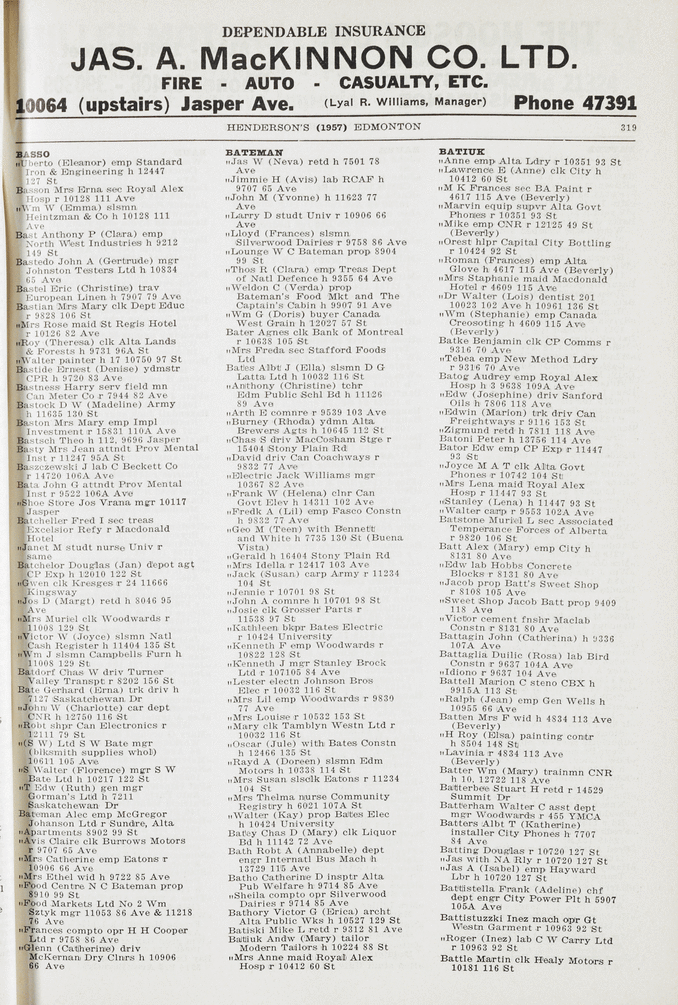 DEPENDABLE INSURANCE
JAS. A. MacKINNON CO. LTD.
FIRE - AUTO - CASUALTY, ETC.
10064 (upstairs) Jasper Ave. (Lyal R. Williams, Manager) Phone 47391
HENDERSON'S (1957) EDMONTON 319
BASSO
„Uberto (Eleanor) emp Standard
Iron & Engineering h 12447
127 St
Basson Mrs Erna sec Royal Alex
Hosp r 10128 111 Ave
„Wm W (Emma) slsmn
Heintzman & Co h 10128 111
Ave
Bast Anthony P (Clara) emp
North West Industries h 9212
149 St
Bastedo John A (Gertrude) mgr
Johnston Testers Ltd h 10834
65 Ave
Bastel Eric (Christine) trav
European Linen h 7907 79 Ave
Bastian Mrs Mary clk Dept Educ
r 9828 106 St
„Mrs Rose maid St Regis Hotel
r 10126 82 Ave
„Roy (Theresa) clk Alta Lands
& Forests h 9731 96A St
„Walter painter h 17 10750 97 St
Bastide Ernest (Denise) ydmstr
CPR h 9720 83 Ave
Bastness Harry serv field mn
Can Meter Co r 7944 82 Ave
Bastock D W (Madeline) Army
h 11635 130 St
Baston Mrs Mary emp Impl
Investment r 15831 110A Ave
Bastsch Theo h 112, 9696 Jasper
Basty Mrs Jean attndt Prov Mental
Inst r 11247 95A St
Baszczewski J lab C Beckett Co
r 14720 106A Ave
Bata John G attndt Prov Mental
Inst r 9522 106A Ave
„Shoe Store Jos Vrana mgr 10117
Jasper
Batcheller Fred I sec treas
Excelsior Refy r Macdonald
Hotel
„Janet M studt nurse Univ r
same
Batchelor Douglas (Jan) depot agt
CP Exp h 12010 122 St
„Gwen clk Kresges r 24 11666
Kingsway
„Jos D (Margt) retd h 8046 95
Ave
„Mrs Muriel clk Woodwards r
11008 129 St
„Victor W (Joyce) slsmn Natl
Cash Register h 11404 135 St
„Wm J slsmn Campbells Furn h
11008 129 St
Batdorf Chas W driv Turner
Valley Transpt r 8202 156 St
Bate Gerhard (Erna) trk driv h
7127 Saskatchewan Dr
„John W (Charlotte) car dept
CNR h 12750 116 St
„Robt shpr Can Electronics r
12111 79 St
„(S W) Ltd S W Bate mgr
(blksmith supplies whol)
10611 105 Ave
„S Walter (Florence) mgr S W
Bate Ltd h 10217 122 St
„T Edw (Ruth) gen mgr
Gorman's Ltd h 7211
Saskatchewan Dr
Bateman Alec emp McGregor
Johanson Ltd r Sundre, Alta
„Apartments 8902 99 St
„Avis Claire clk Burrows Motors
r 9707 65 Ave
„Mrs Catherine emp Eatons r
10906 66 Ave
„Mrs Ethel wid h 9722 85 Ave
„Food Centre N C Bateman prop
8910 99 St
„Food Markets Ltd No 2 Wm
Sztyk mgr 11053 86 Ave & 11218
76 Ave
„Frances compto opr H H Cooper
Ltd r 9758 86 Ave
„Glenn (Catherine) driv
McKernan Dry Clnrs h 10906
66 Ave
BATEMAN
„Jas W (Neva) retd h 7501 78
Ave
„Jimmie H (Avis) lab RCAF h
9707 65 Ave
„John M (Yvonne) h 11623 77
Ave
„Larry D studt Univ r 10906 66
Ave
„Lloyd (Frances) slsmn
Silverwood Dairies r 9758 86 Ave
„Lounge W C Bateman prop 8904
99 St
„Thos R (Clara) emp Treas Dept
of Natl Defence h 9355 64 Ave
„Weldon C (Verda) prop
Bateman's Food Mkt and The
Captain's Cabin h 9907 91 Ave
„Wm G (Doris) buyer Canada
West Grain h 12027 57 St
Bater Agnes clk Bank of Montreal
r 10638 105 St
„Mrs Freda sec Stafford Foods
Ltd
Bates Albt J (Ella) slsmn D G
Latta Ltd h 10032 116 St
„Anthony (Christine) tchr
Edm Public Schl Bd h 11126
89 Ave
„Arth E comnre r 9539 103 Ave
„Burney (Rhoda) ydmn Alta
Brewers Agts h 10645 112 St
„Chas S driv MacCosham Stge r
15404 Stony Plain Rd
„David driv Can Coachways r
9832 77 Ave
„Electric Jack Williams mgr
10367 82 Ave
„Frank W (Helena) clnr Can
Govt Elev h 14311 102 Ave
„Fredk A (Lil) emp Fasco Constn
h 9832 77 Ave
„Geo M (Teen) with Bennett
and White h 7735 130 St (Buena
Vista)
„Gerald h 16404 Stony Plain Rd
„Mrs Idella r 12417 103 Ave
„Jack (Susan) carp Army r 11234
104 St
„Jennie r 10701 98 St
„John A comnre h 10701 98 St
„Josie clk Grosser Parts r
11538 97 St
„Kathleen bkpr Bates Electric
r 10424 University
„Kenneth F emp Woodwards r
10822 128 St
„Kenneth J mgr Stanley Brock
Ltd r 107105 84 Ave
„Lester electn Johnson Bros
Elec r 10032 116 St
„Mrs Lil emp Woodwards r 9830
77 Ave
„Mrs Louise r 10532 153 St
„Mary clk Tamblyn Westn Ltd r
10032 116 St
„Oscar (Jule) with Bates Constn
h 12466 135 St
„Rayd A (Doreen) slsmn Edm
Motors h 10338 114 St
„Mrs Susan slsclk Eatons r 11234
104 St
„Mrs Thelma nurse Community
Registry h 6021 107A St
„Walter (Kay) prop Bates Elec
h 10424 University
Batey Chas D (Mary) clk Liquor
Bd h 11142 72 Ave
Bath Robt A (Annabelle) dept
engr Internatl Bus Mach h
13729 115 Ave
Batho Catherine D insptr Alta
Pub Welfare h 9714 85 Ave
„Sheila compto opr Silverwood
Dairies r 9714 85 Ave
Bathory Victor G (Erica) archt
Alta Public Wks h 10527 129 St
Batiski Mike L retd r 9312 81 Ave
Batiuk Andw (Mary) tailor
Modern Tailors h 10224 88 St
„Mrs Anne maid Royal Alex
Hosp r 10412 60 St
BATIUK
„Anne emp Alta Ldry r 10351 93 St
„Lawrence E (Anne) clk City h
10412 60 St
„M K Frances sec BA Paint r
4617 115 Ave (Beverly)
„Marvin equip supvr Alta Govt
Phones r 10351 93 St
„Mike emp CNR r 12125 49 St
(Beverly)
„Orest hlpr Capital City Bottling
r 10424 92 St
„Roman (Frances) emp Alta
Glove h 4617 115 Ave (Beverly)
„Mrs Stephanie maid Macdonald
Hotel r 4609 115 Ave
„Dr Walter (Lois) dentist 201
10023 102 Ave h 10961 136 St
„Wm (Stephanie) emp Canada
Creosoting h 4609 115 Ave
(Beverly)
Batke Benjamin clk CP Comms r
9316 70 Ave
„Tebea emp New Method Ldry
r 9316 70 Ave
Batog Audrey emp Royal Alex
Hosp h 3 9638 109A Ave
„Edw (Josephine) driv Sanford
Oils h 7806 118 Ave
„Edwin (Marion) trk driv Can
Freightways r 9116 153 St
„Zigmund retd h 7811 118 Ave
Batoni Peter h 13756 114 Ave
Bator Edw emp CP Exp r 11447
93 St
„Joyce M A T clk Alta Govt
Phones r 10742 104 St
„Mrs Lena maid Royal Alex
Hosp r 11447 93 St
„Stanley (Lena) h 11447 93 St
„Walter carp r 9553 102A Ave
Batstone Muriel L sec Associated
Temperance Forces of Alberta
r 9820 106 St
Batt Alex (Mary) emp City h
8131 80 Ave
„Edw lab Hobbs Concrete
Blocks r 8131 80 Ave
„Jacob prop Batt's Sweet Shop
r 8108 105 Ave
„Sweet Shop Jacob Batt prop 9409
118 Ave
„Victor cement fnshr Maclab
Constn r 8131 80 Ave
Battagin John (Catherina) h 9336
107A Ave
Battaglia Duilic (Rosa) lab Bird
Constn r 9637 104A Ave
„Idiono r 9637 104 Ave
Battell Marion C steno CBX h
9915A 113 St
„Ralph (Jean) emp Gen Wells h
10955 66 Ave
Batten Mrs F wid h 4834 113 Ave
(Beverly)
„H Roy (Elsa) painting contr
h 8504 148 St
„Lavinia r 4834 113 Ave
(Beverly)
Batter Wm (Mary) trainmn CNR
h 10, 12722 118 Ave
Batterbee Stuart H retd r 14529
Summit Dr
Batterham Walter C asst dept
mgr Woodwards r 455 YMCA
Batters Albt T (Katherine)
installer City Phones h 7707
84 Ave
Batting Douglas r 10720 127 St
„Jas with NA Rly r 10720 127 St
„Jas A (Isabel) emp Hayward
Lbr h 10720 127 St
Battistella Frank (Adeline) chf
dept engr City Power Plt h 5907
105A Ave
Battistuzzki Inez mach opr Gt
Westn Garment r 10963 92 St
„Roger (Inez) lab C W Carry Ltd
r 10963 92 St
Battle Martin clk Healy Motors r
10181 116 St